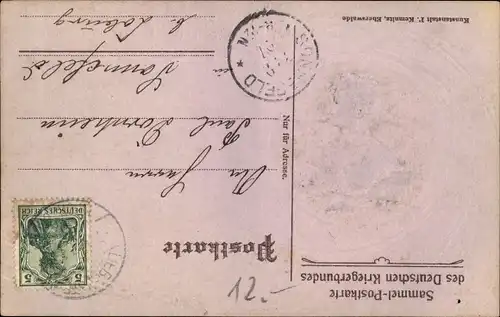 Sammel-Postkarte
des Deutschen Kriegerbundes
Postkarte
DEUTSCHES REICH
5 5
An Herrn
Paul Dornheim
Sonnefeld
b. Coburg
Nur für Adresse.
SONNEFELD
Kunstanstalt P. Kemnitz, Eberswalde
12.-